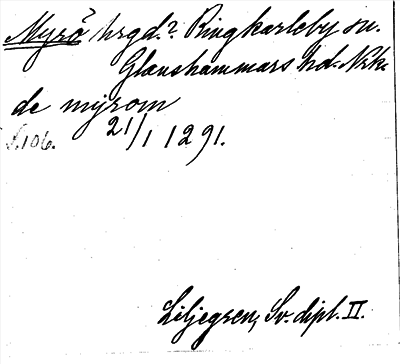 Myrö hrgd.? Ringkarleby sn.
Glanshammars hd. Nrk.
de myrom
21/1 1291.
S. 106.
Liljegren, Sv. dipl. II.